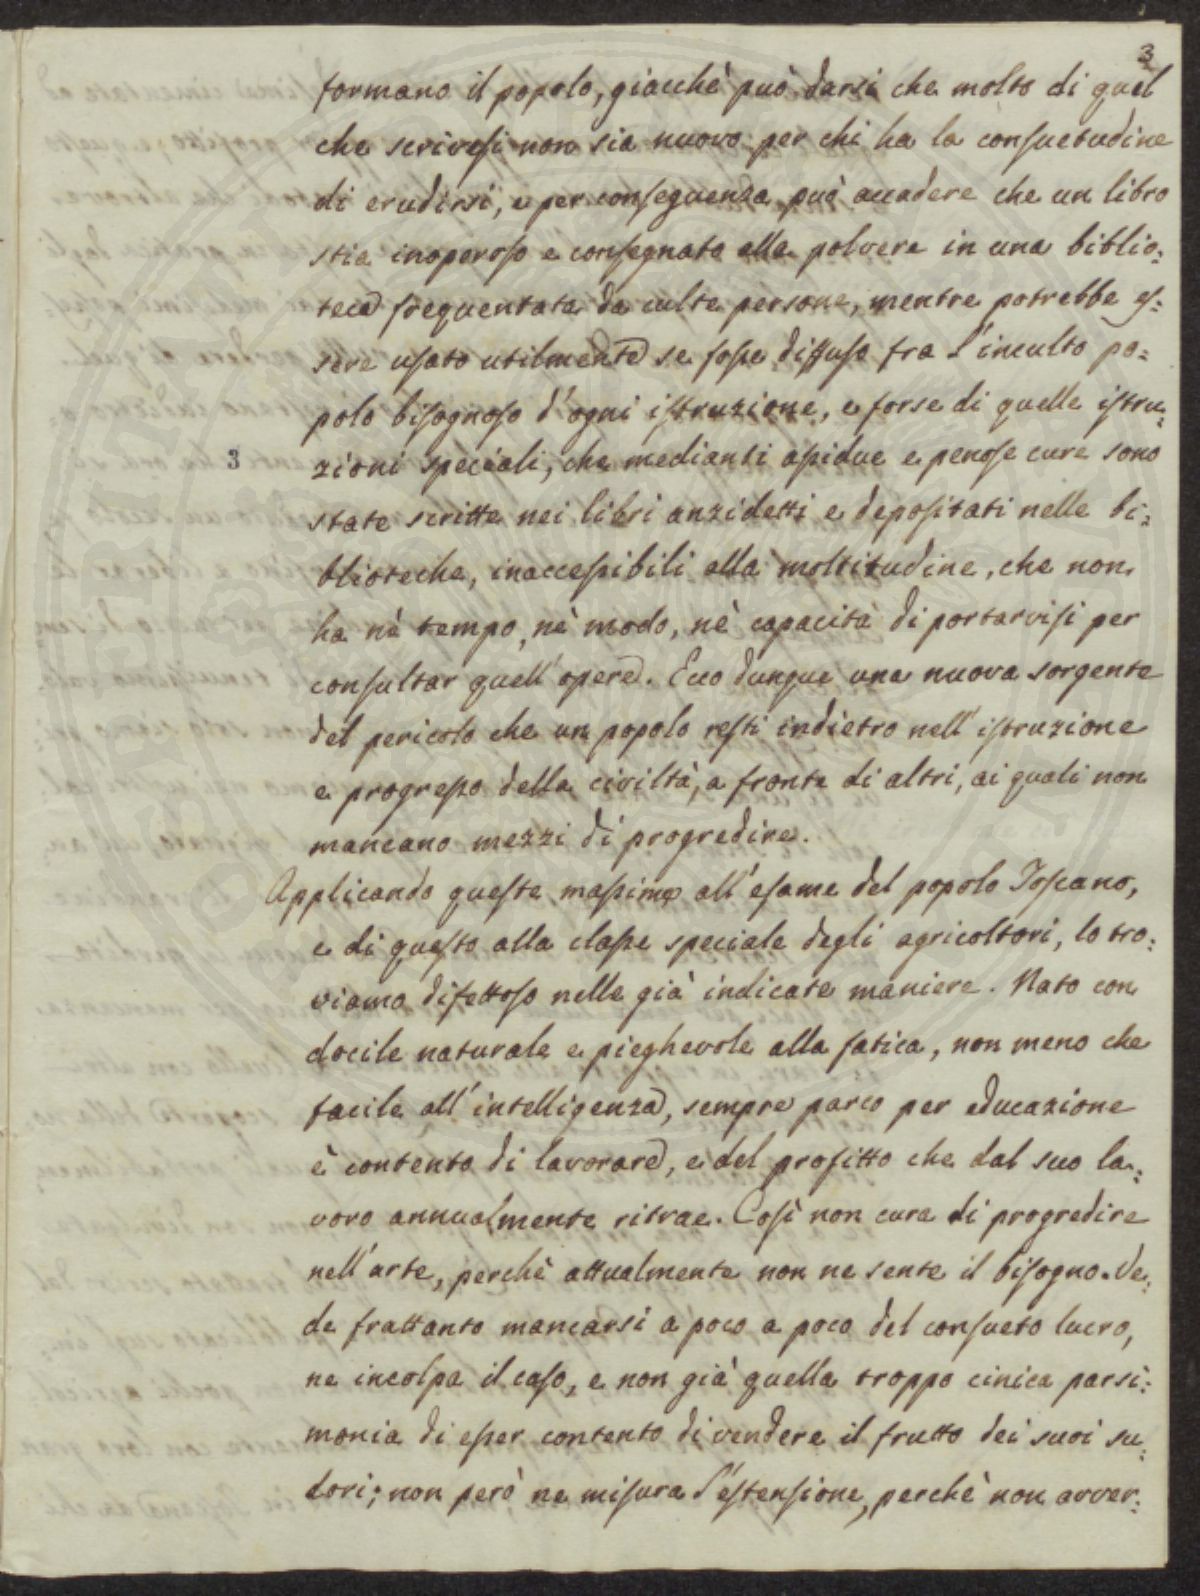 3
formano il popolo, giacchè può darsi che molto di quel
che scrivesi non sia nuovo per chi ha la consuetudine
di erudirsi, e per conseguenza può accadere che un libro
stia inoperoso e consegnato alla polvere in una biblio:
teca frequentata da culte persone, mentre potrebbe es:
sere usato utilmente se fosse diffuso fra l'inculto po:
polo bisognoso d'ogni istruzione, e forse di quelle istru:
3
zioni speciali, che medianti assidue e penose cure sono
state scritte nei libri anzidetti e depositati nelle bi:
blioteche, inaccessibili alla moltitudine, che non
ha nè tempo, nè modo, nè capacità di portarvisi per
consultar quell'opere. Ecco dunque una nuova sorgente
del pericolo che un popolo resti indietro nell'istruzione
e progresso della civiltà, a fronte di altri, ai quali non
mancano mezzi di progredire.
Applicando queste massime all'esame del popolo Toscano,
e di questo alla classe speciale degli agricoltori, lo tro:
viamo difettoso nelle già indicate maniere. Nato con
docile naturale e pieghevole alla fatica, non meno che
facile all'intelligenza, sempre parco per educazione
è contento di lavorare, e del profitto che dal suo la:
voro annualmente ritrae. Così non cura di progredire
nell'arte, perchè attualmente non ne sente il bisogno. Ve:
de frattanto mancarsi a poco a poco del consueto lucro,
ne incolpa il caso, e non già quella troppo cinica parsi:
monia di esser contento di vendere il frutto dei suoi su:
dori; non però ne misura l'estensione, perchè non avver: